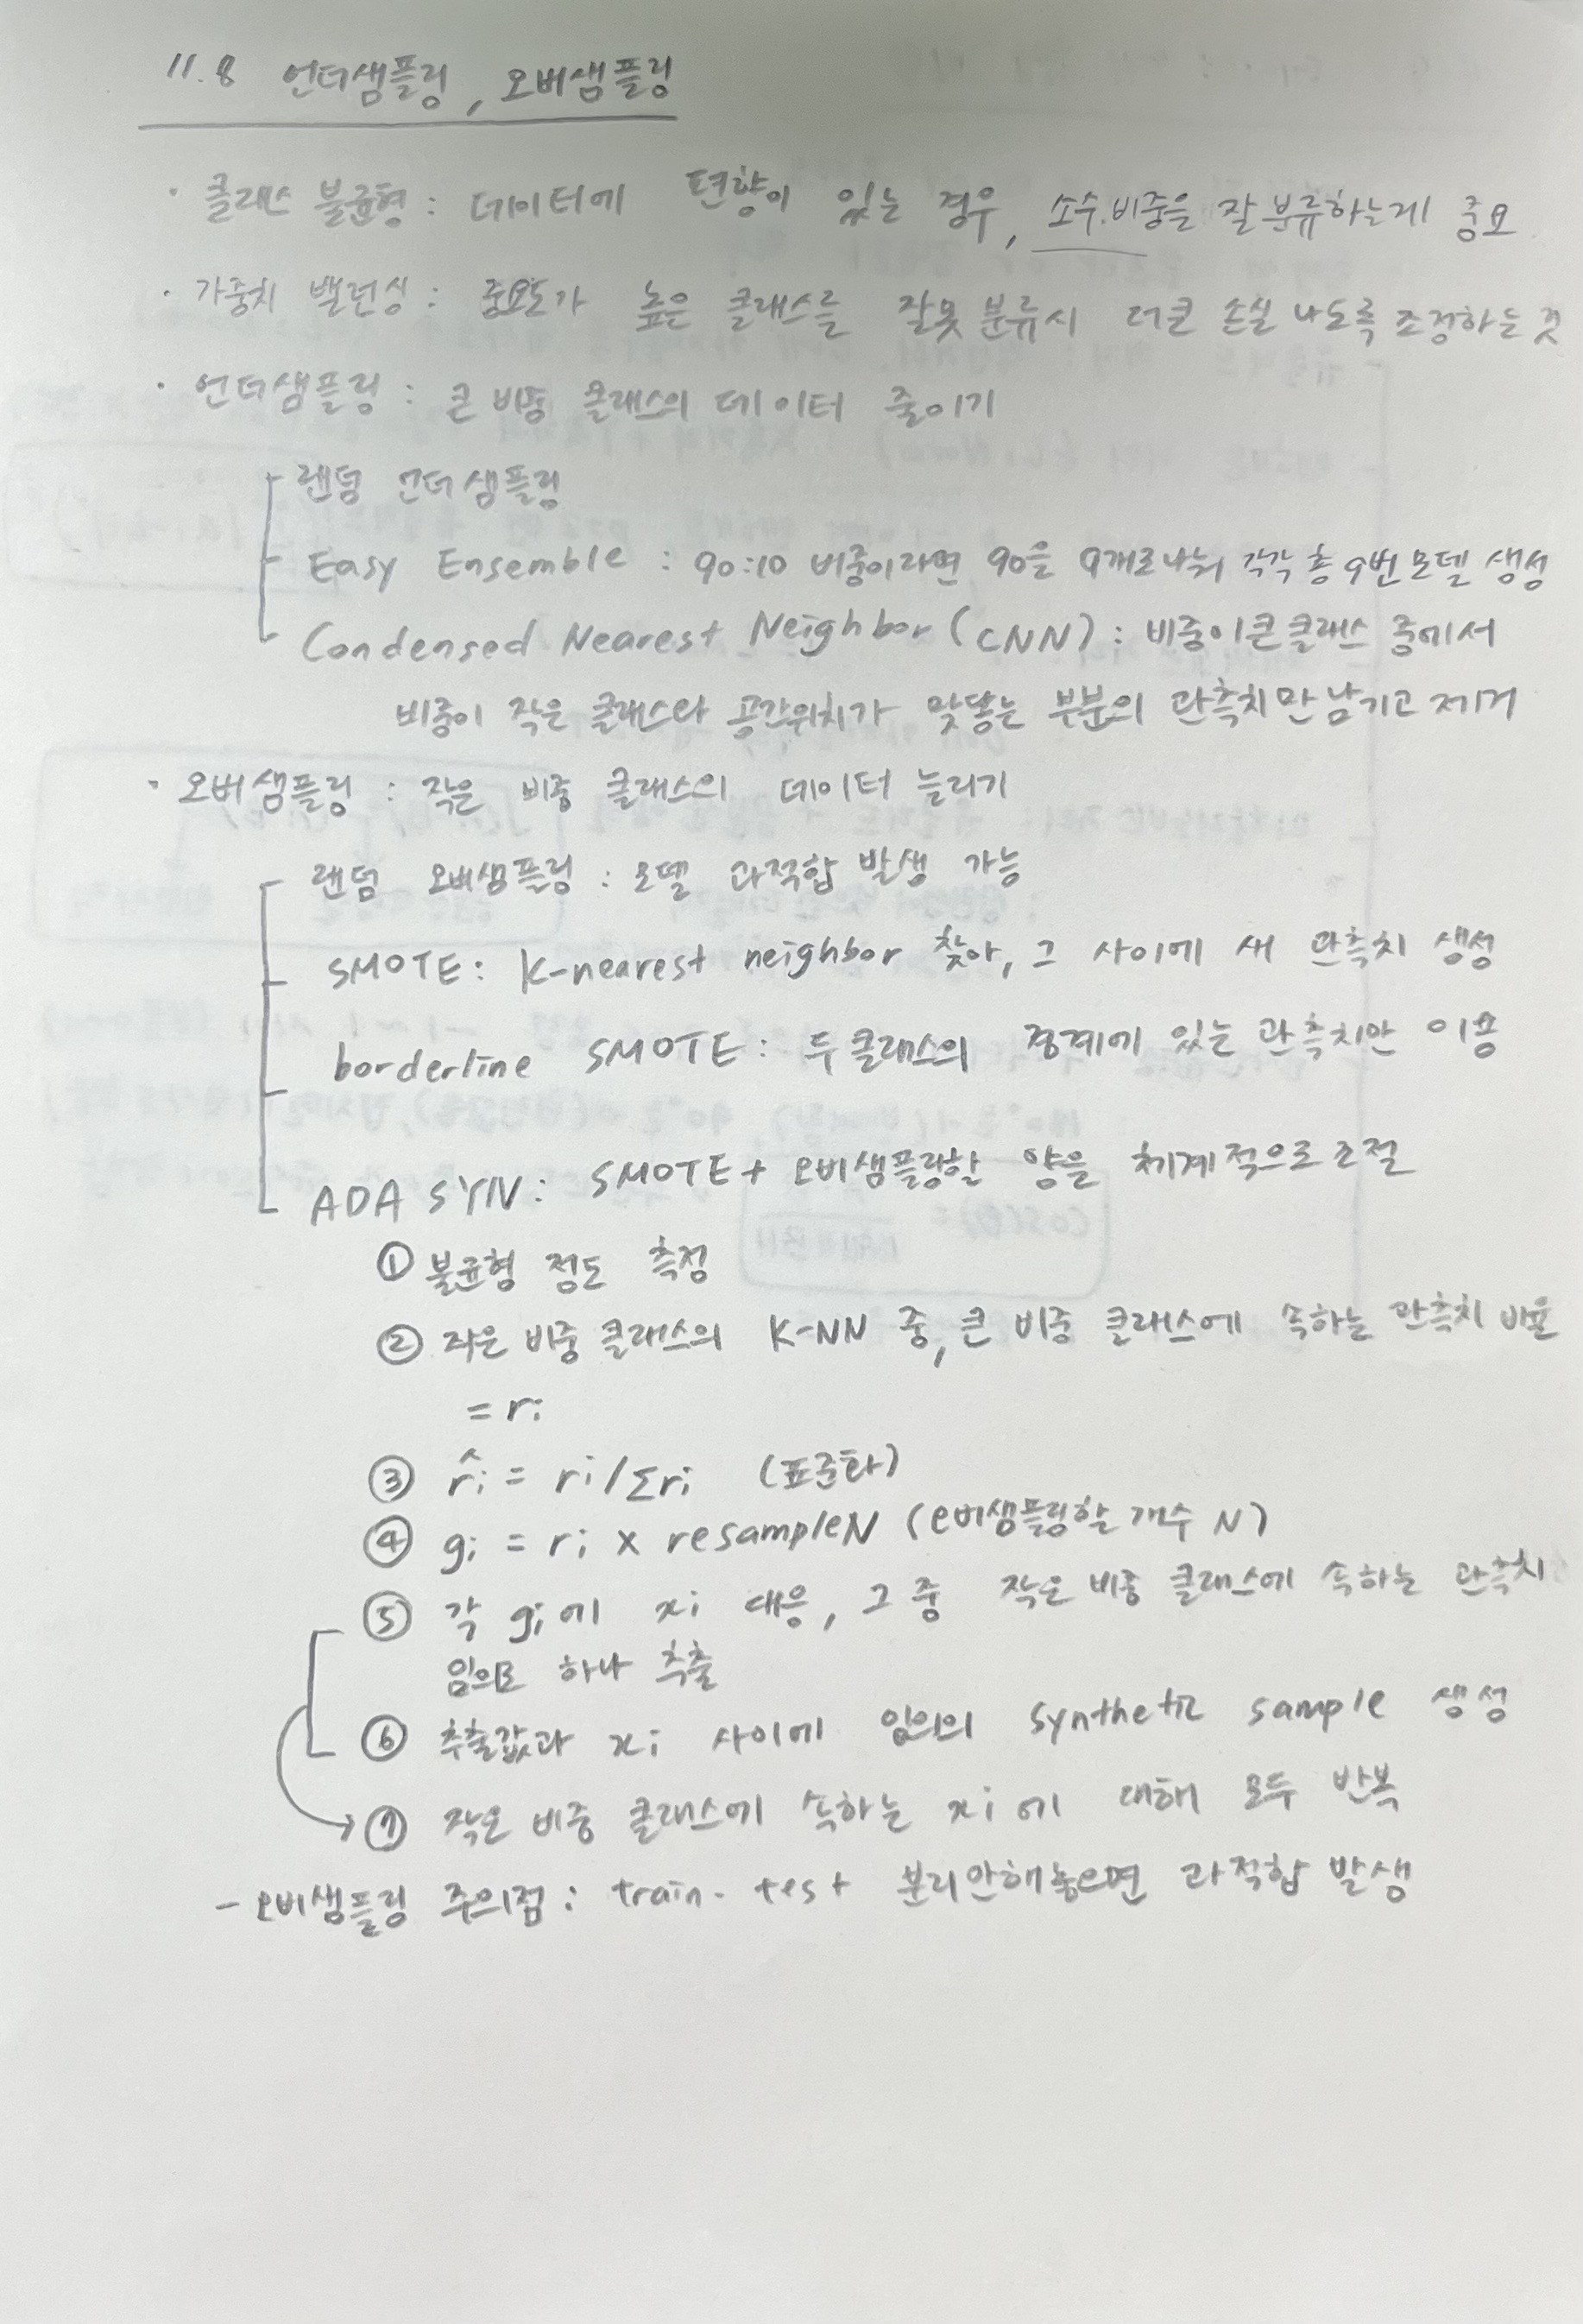 11.8 언더샘플링, 오버샘플링
· 클래스 불균형 : 데이터에 편향이 있는 경우, 소수.비중을 잘 분류하는게 중요
· 가중치 밸런싱 : 중요도가 높은 클래스를 잘못 분류시 더큰 손실 나도록 조정하는 것
· 언더샘플링 : 큰 비중 클래스의 데이터 줄이기
랜덤 언더샘플링
Easy Ensemble : 90:10 비중이라면 90을 9개로나눠 각각 총 9번 모델 생성
Condensed Nearest Neighbor (CNN) : 비중이 큰 클래스 중에서
비중이 작은 클래스와 공간위치가 맞닿는 부분의 관측치만 남기고 제거
· 오버샘플링 : 작은 비중 클래스의 데이터 늘리기
랜덤 오버샘플링 : 모델 과적합 발생 가능
SMOTE : K-nearest neighbor 찾아, 그 사이에 새 관측치 생성
borderline SMOTE : 두 클래스의 경계에 있는 관측치만 이용
ADA SYN : SMOTE + 오버샘플링할 양을 체계적으로 조절
① 불균형 정도 측정
② 작은 비중 클래스의 K-NN 중, 큰 비중 클래스에 속하는 관측치 비율
= ri
③ r̂i = ri/Σri (표준화)
④ gi = ri × resampleN (오버샘플링할 개수 N)
⑤ 각 gi에 xi 대응, 그 중 작은 비중 클래스에 속하는 관측치
임의로 하나 추출
⑥ 추출값과 xi 사이에 임의의 synthetic sample 생성
⑦ 작은 비중 클래스에 속하는 xi에 대해 모두 반복
- 오버샘플링 주의점 : train. test 분리안해놓으면 과적합 발생